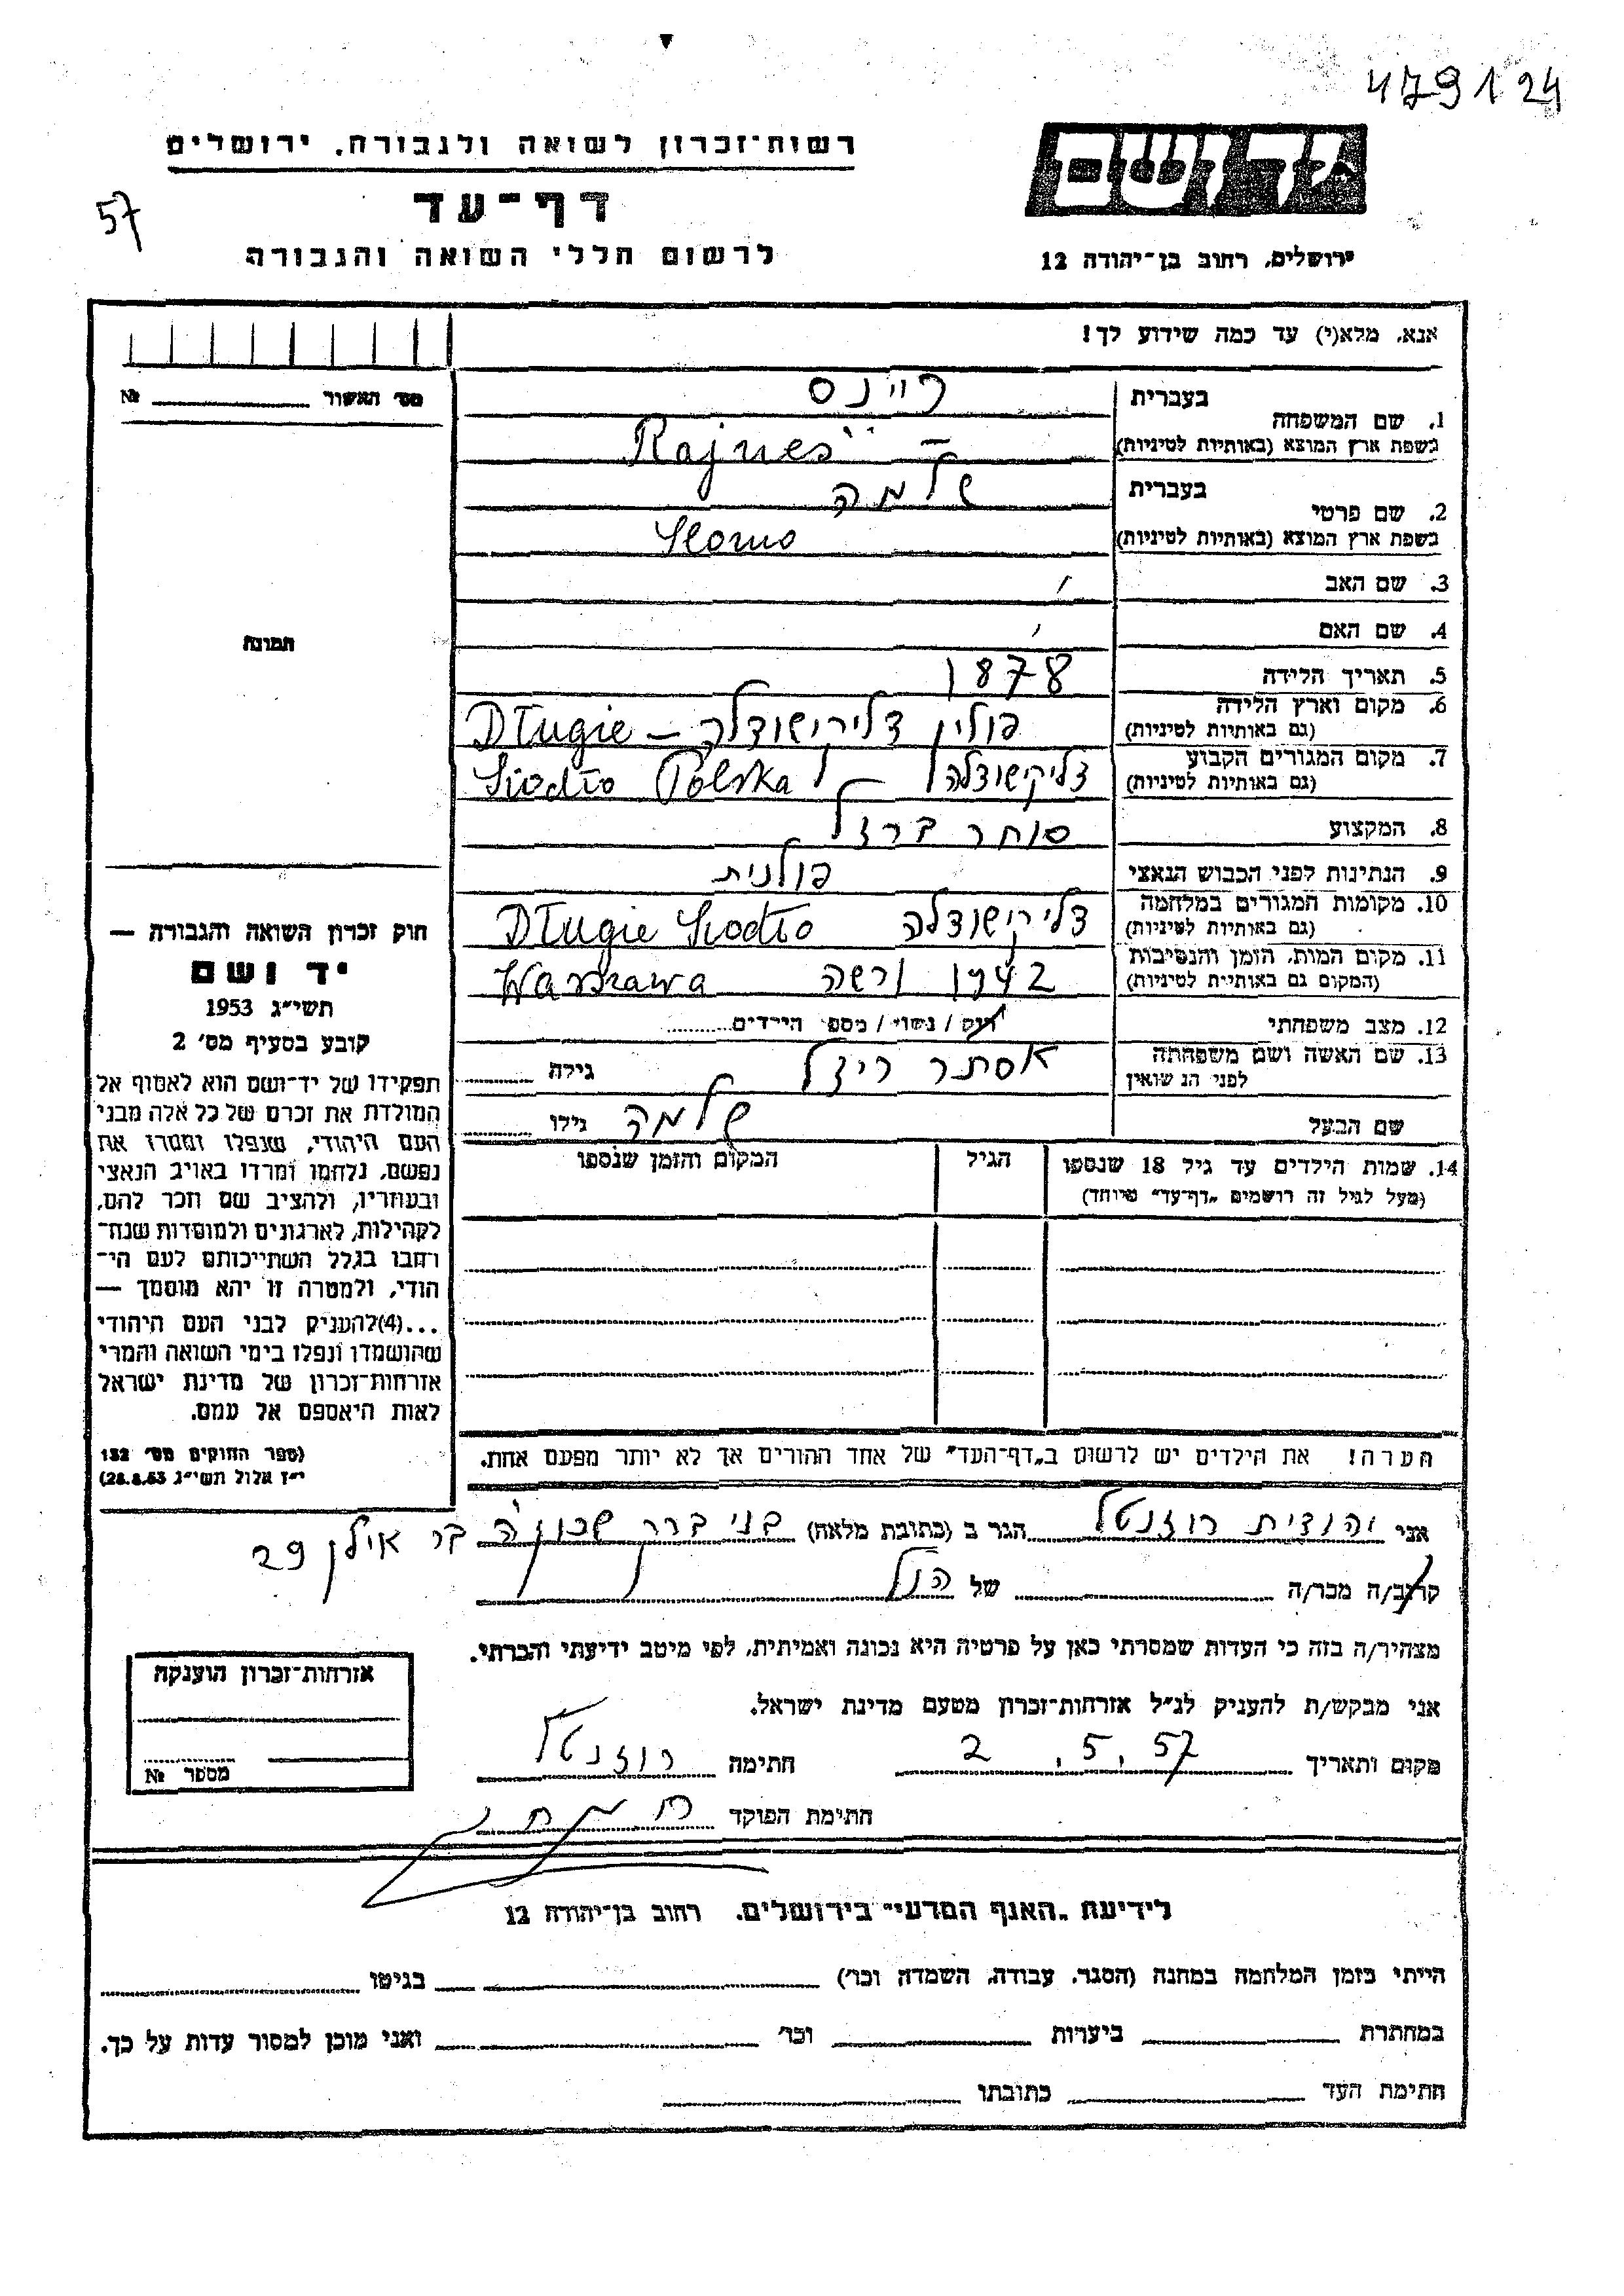 479124
רשות־זכרון לשואה ולגבורה, ירושלים
דף־עד
לרשום חללי השואה והגבורה
57
יד ושם
ירושלים, רחוב בן־יהודה 12
אנא, מלא(י) עד כמה שידוע לך!
מס׳ האשור № 
1. שם המשפחה
בעברית
ריינס
בשפת ארץ המוצא (באותיות לטיניות)
Rajnes
2. שם פרטי
בעברית
שלמה
בשפת ארץ המוצא (באותיות לטיניות)
Slomo
3. שם האב
4. שם האם
תמונה
5. תאריך הלידה 1878
6. מקום וארץ הלידה
(גם באותיות לטיניות)
פולין Długie –
7. מקום המגורים הקבוע
(גם באותיות לטיניות)
Siodło Polska
8. המקצוע סוחר ברזל
9. הנתינות לפני הכבוש הנאצי פולנית
10. מקומות המגורים במלחמה
(גם באותיות לטיניות)
Długie Siodło
11. מקום המות, הזמן והנסיבות
(המקום גם באותיות לטיניות)
1942 ורשה Warszawa
12. מצב משפחתי
רוק / נשוי / מספר הילדים
13. שם האשה ושם משפחתה
לפני הנשואין
אסתר רייצל גילה
שם הבעל שלמה גילו
14. שמות הילדים עד גיל 18 שנספו
(מעל לגיל זה רושמים „דף־עד” מיוחד)
הגיל
המקום והזמן שנספו
הערה! את הילדים יש לרשום ב„דף־העד” של אחד ההורים אך לא יותר מפעם אחת.
חוק זכרון השואה והגבורה —
יד ושם
תשי״ג 1953
קובע בסעיף מס׳ 2
תפקידו של יד־ושם הוא לאסוף אל
המולדת את זכרם של כל אלה מבני
העם היהודי, שנפלו ומסרו את
נפשם, נלחמו ומרדו באויב הנאצי
ובעוזריו, ולהציב שם וזכר להם,
לקהילות, לארגונים ולמוסדות שנח־
רבו בגלל השתייכותם לעם הי־
הודי, ולמטרה זו יהא מוסמך —
...(4)להעניק לבני העם היהודי
שהושמדו ונפלו בימי השואה והמרי
אזרחות־זכרון של מדינת ישראל
לאות היאספם אל עמם.
(ספר החוקים מס׳ 132
י״ז אלול תשי״ג 28.8.53)
אני יהודית רוזנטל הגר ב (כתובת מלאה) בני ברק שכונה בר אילן 29
קרוב/ה מכר/ה של הנ״ל
מצהיר/ה בזה כי העדות שמסרתי כאן על פרטיה היא נכונה ואמיתית, לפי מיטב ידיעתי והכרתי.
אני מבקש/ת להעניק לנ״ל אזרחות־זכרון מטעם מדינת ישראל.
מקום ותאריך 2.5.57 חתימה רוזנטל
חתימת הפוקד
אזרחות־זכרון הוענקה
מספר №
לידיעת „האגף המדעי” בירושלים, רחוב בן־יהודה 12
הייתי בזמן המלחמה במחנה (הסגר, עבודה, השמדה וכו׳) בגיטו
במחתרת ביערות וכו׳ ואני מוכן למסור עדות על כך.
חתימת העד כתובתו